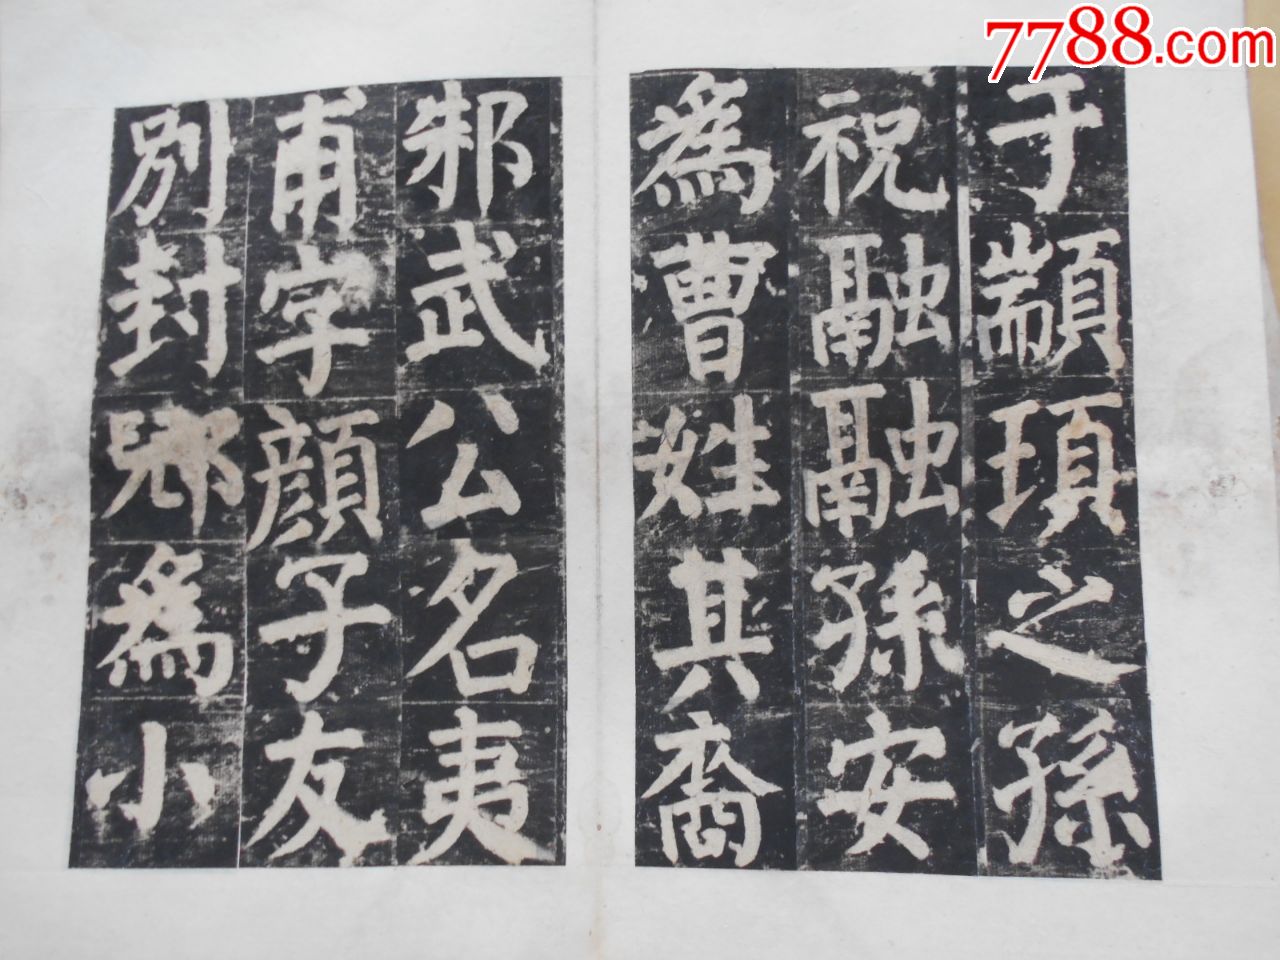 7788.com
于顓頊之孫
祝融融孫安
為曹姓其裔
邾武公名夷
甫字顔子友
別封郳為小